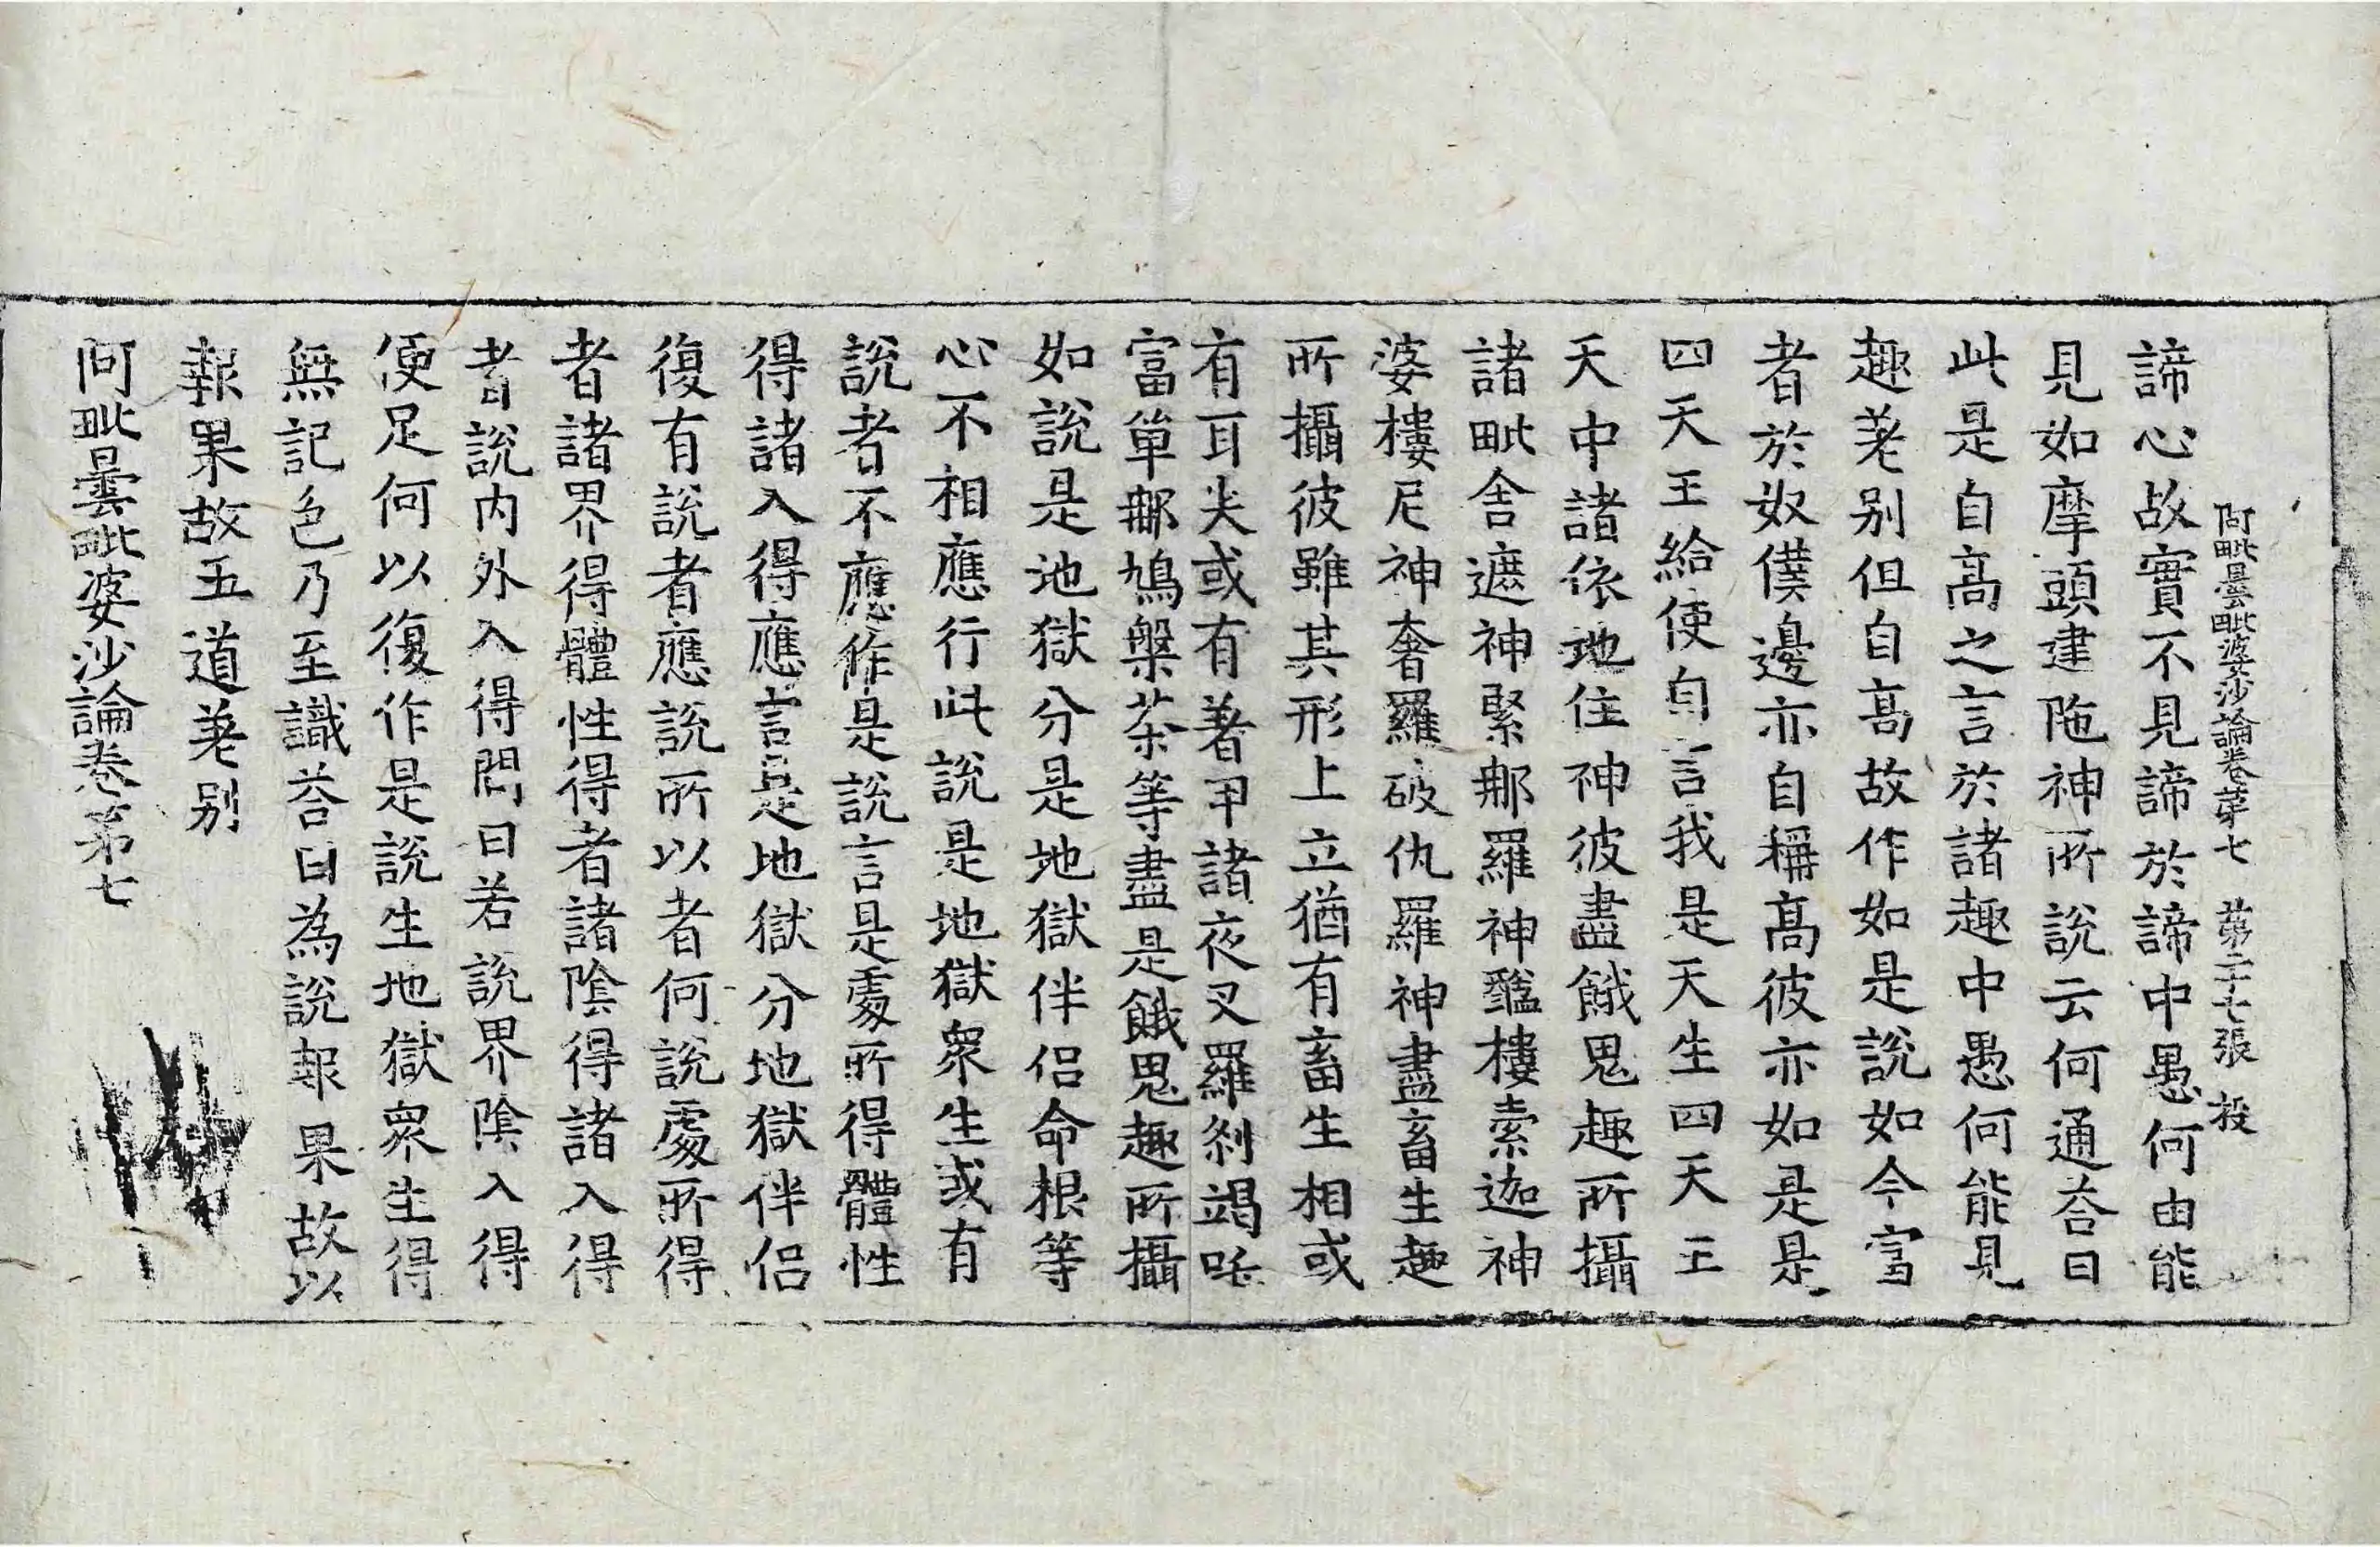 阿毗曇毗婆沙論卷第七 第二十七張 投
諦心故實不見諦於諦中愚何由能
見如摩頭建陁神所說云何通荅曰
此是自高之言於諸趣中愚何能見
趣差别但自高故作如是說如今富
者於奴僕邊亦自稱高彼亦如是是
四天王給使自言我是天生四天王
天中諸依地住神彼盡餓鬼趣所攝
諸毗舍遮神緊那羅神醯樓索迦神
婆樓尼神奢羅破仇羅神盡畜生趣
所攝彼雖其形上立猶有畜生相或
有耳尖或有著甲諸夜叉羅剎竭吒
富單那鳩槃茶等盡是餓鬼趣所攝
如說是地獄分是地獄伴侣命根等
心不相應行此說是地獄衆生或有
說者不應作是說言是處所得體性
得諸入得應言是地獄分地獄伴侣
復有說者應說所以者何說處所得
者諸界得體性得者諸陰得諸入得
者說内外入得問曰若說界陰入得
便足何以復作是說生地獄衆生得
無記色乃至識荅曰為說報果故以
報果故五道差别
阿毗曇毗婆沙論卷第七